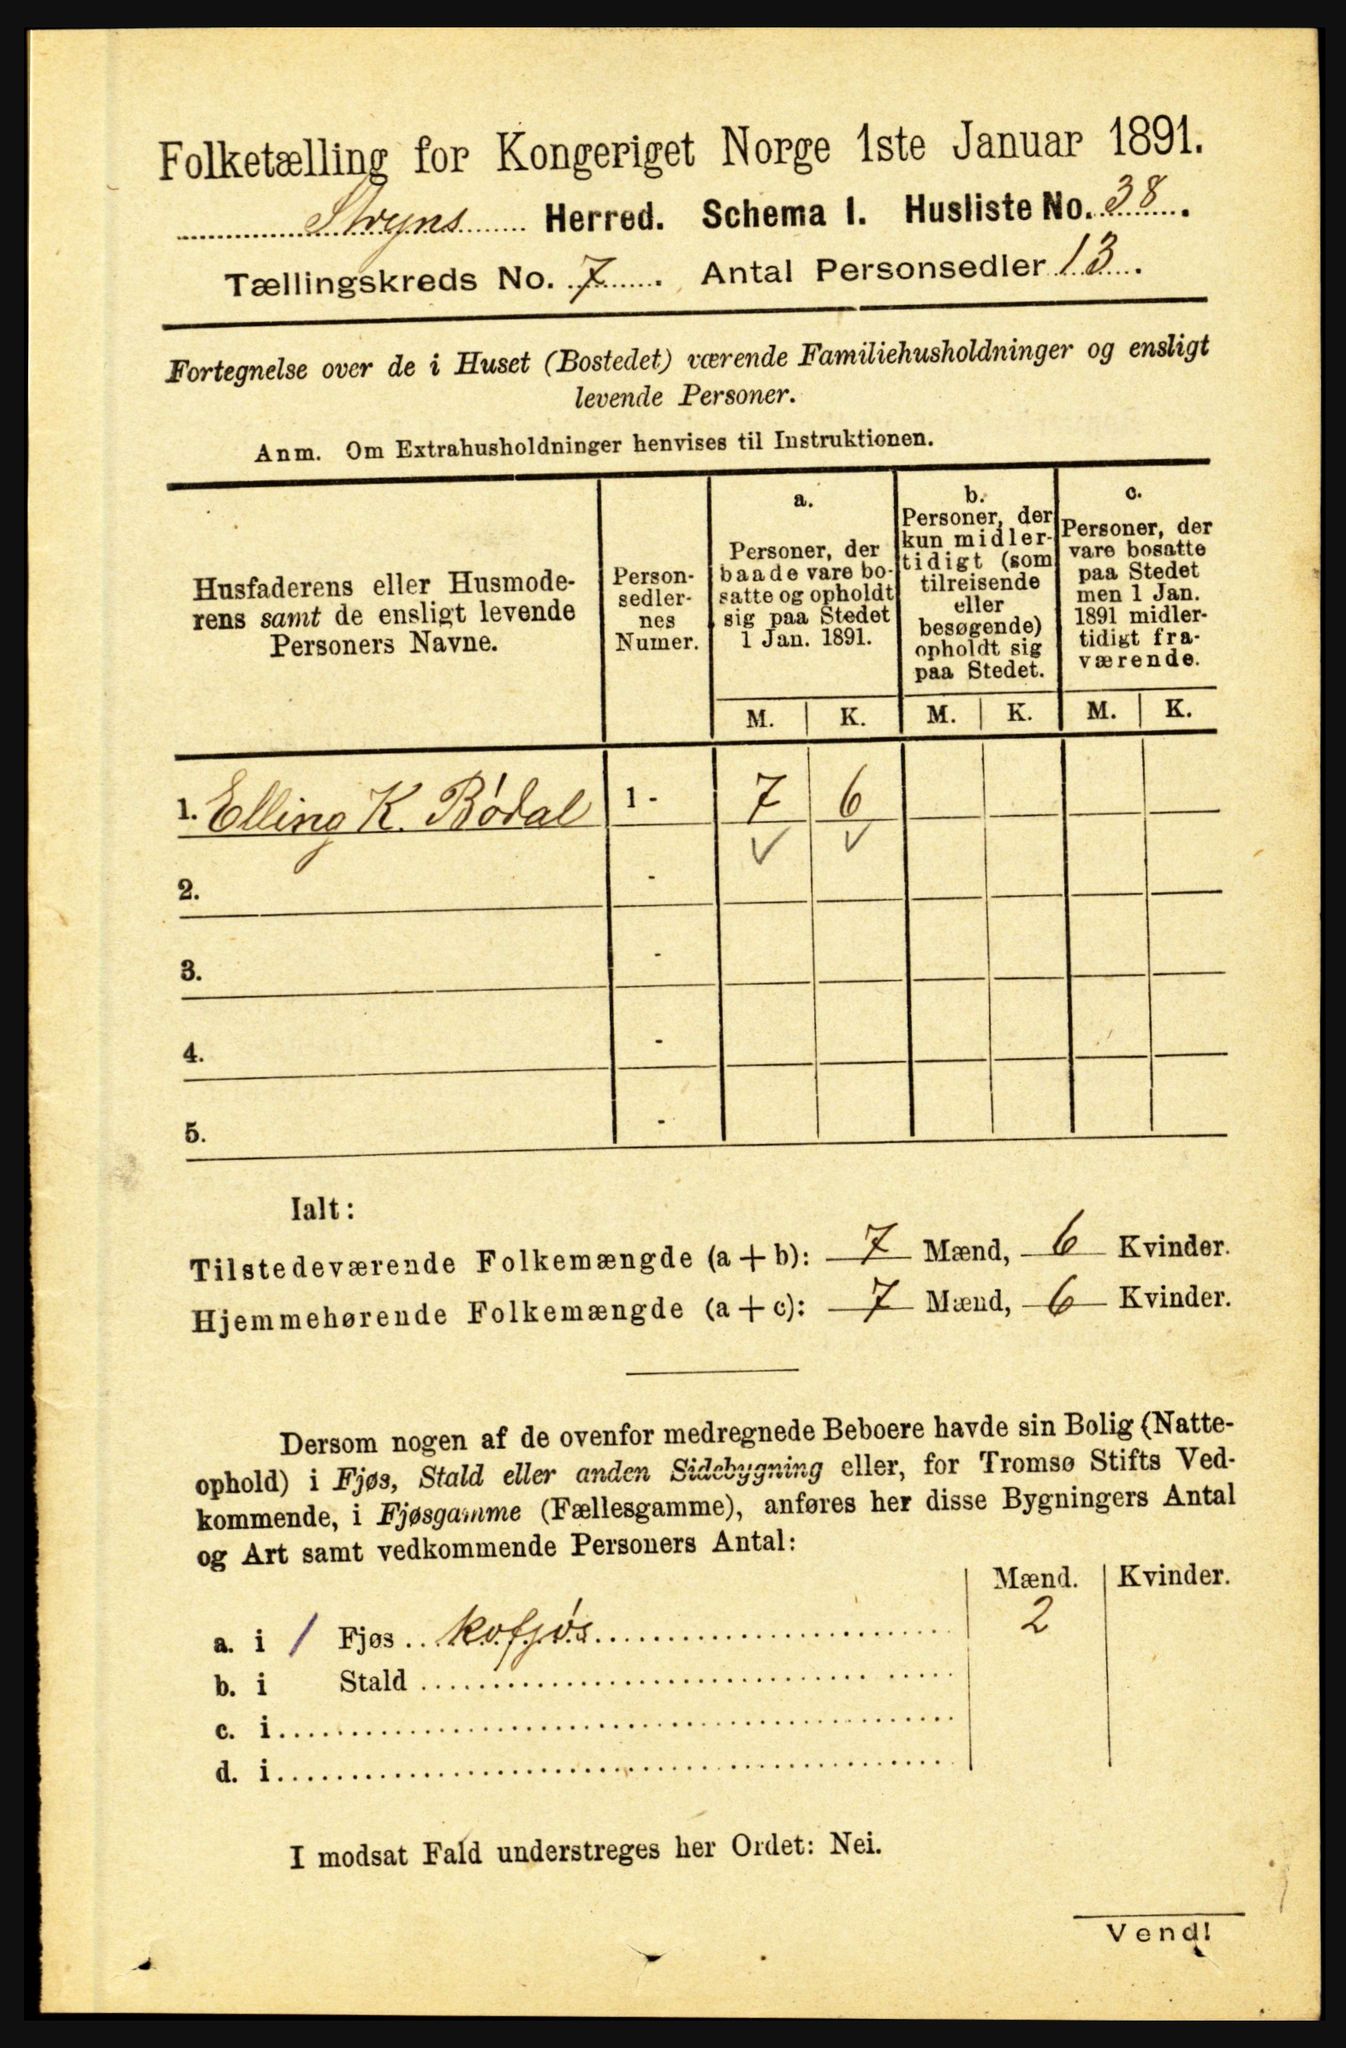 Folketælling for Kongeriget Norge 1ste Januar 1891.
Stryns Herred. Schema I. Husliste No. 38.
Tællingskreds No. 7. Antal Personsedler 13.
Fortegnelse over de i Huset (Bostedet) værende Familiehusholdninger og ensligt
levende Personer.
Anm. Om Extrahusholdninger henvises til Instruktionen.
Husfaderens eller Husmode-
rens samt de ensligt levende
Personers Navne.
Person-
sedler-
nes
Numer.
a.
Personer, der
baade vare bo-
satte og opholdt
sig paa Stedet
1 Jan. 1891.
b.
Personer, der
kun midler-
tidigt (som
tilreisende
eller
besøgende)
opholdt sig
paa Stedet.
c.
Personer, der
vare bosatte
paa Stedet
men 1 Jan.
1891 midler-
tidigt fra-
værende.
M. K. M. K. M. K.
1. Elling K. Bødal 1 - 7 6
2. -
3. -
4. -
5. -
Ialt:
Tilstedeværende Folkemængde (a + b): 7 Mænd, 6 Kvinder.
Hjemmehørende Folkemængde (a + c): 7 Mænd, 6 Kvinder.
Dersom nogen af de ovenfor medregnede Beboere havde sin Bolig (Natte-
ophold) i Fjøs, Stald eller anden Sidebygning eller, for Tromsø Stifts Ved-
kommende, i Fjøsgamme (Fællesgamme), anføres her disse Bygningers Antal
og Art samt vedkommende Personers Antal:
Mænd. Kvinder.
a. i 1 Fjøs .. kofjøs 2
b. i Stald
c. i
d. i
I modsat Fald understreges her Ordet: Nei.
Vend!